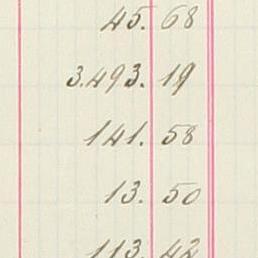 45. 68
3.493. 19
141. 58
13. 50
113. 42